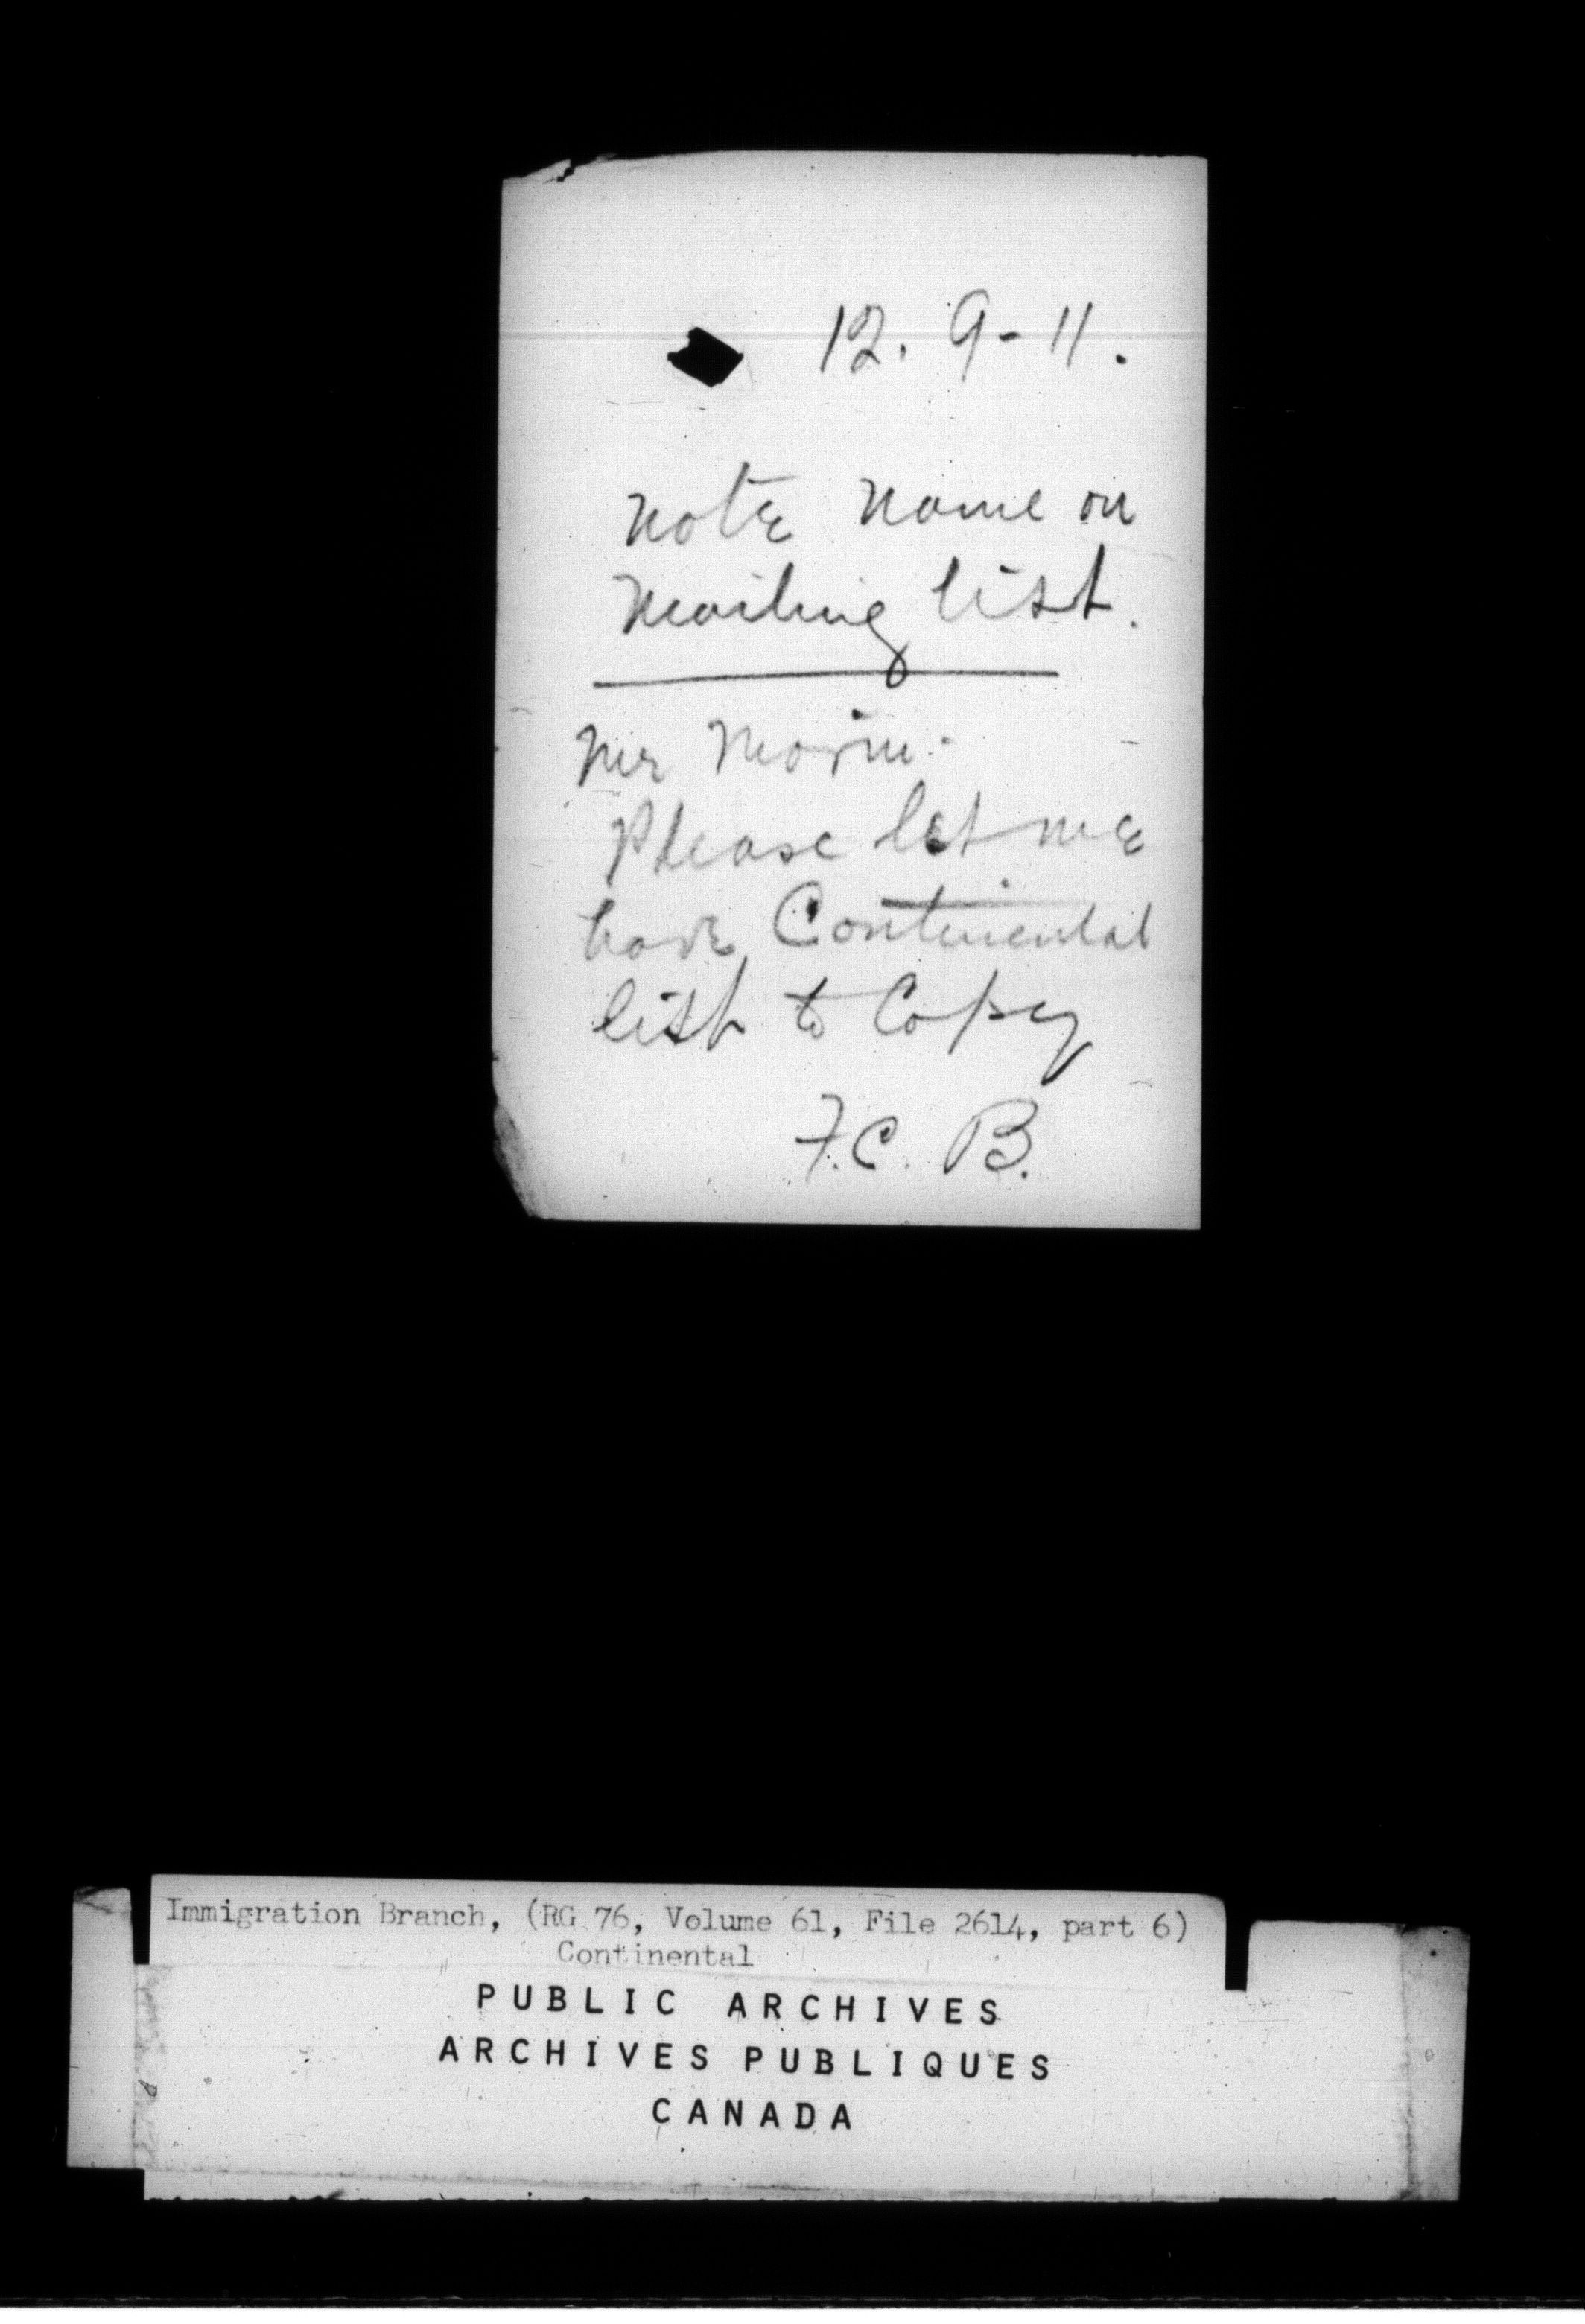 12. 9 - 11.
Note name on
Mailing list.
Mr Morin.
Please let me
have Continental
list to Copy
F.C. B.
Immigration Branch, (RG 76, Volume 61, File 2614, part 6)
Continental
PUBLIC ARCHIVES
ARCHIVES PUBLIQUES
CANADA